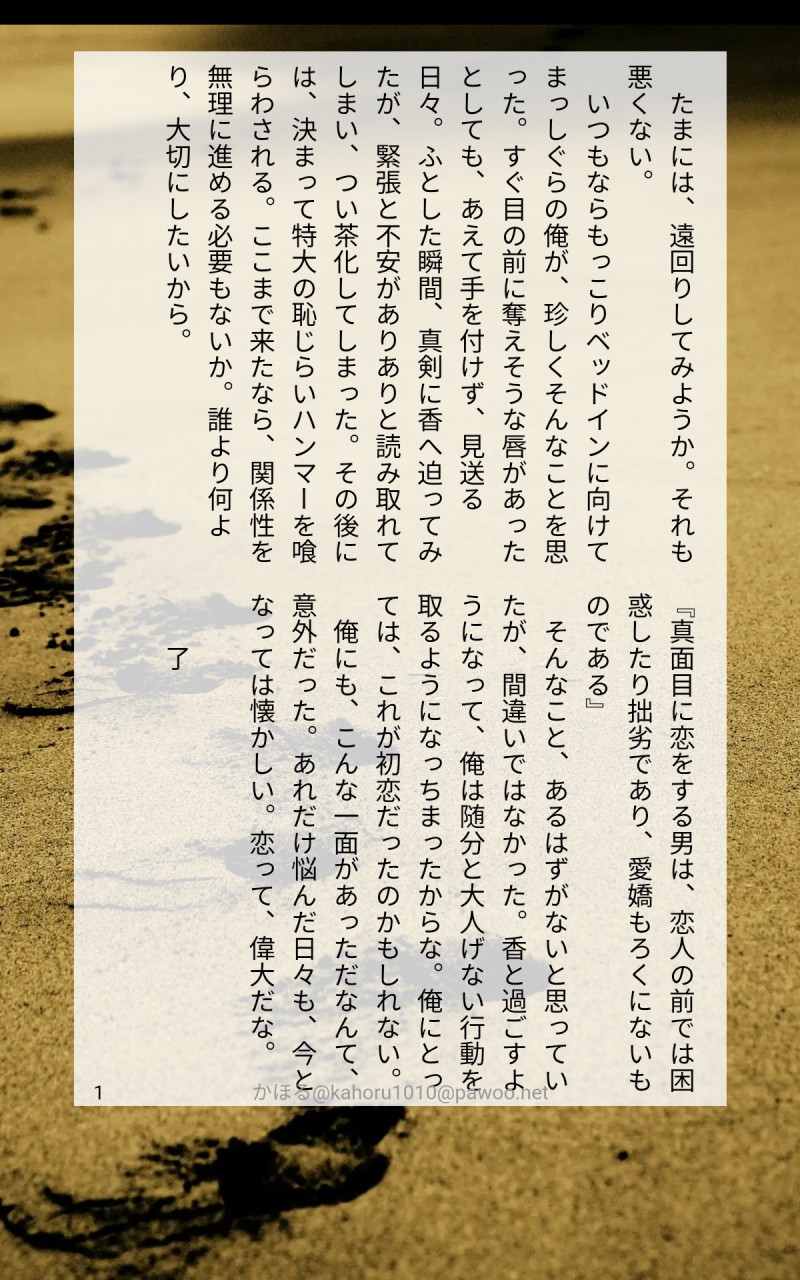 たまには、遠回りしてみようか。それも
悪くない。
いつもならもっこりベッドインに向けて
まっしぐらの俺が、珍しくそんなことを思
った。すぐ目の前に奪えそうな唇があった
としても、あえて手を付けず、見送る
日々。ふとした瞬間、真剣に香へ迫ってみ
たが、緊張と不安がありありと読み取れて
しまい、つい茶化してしまった。その後に
は、決まって特大の恥じらいハンマーを喰
らわされる。ここまで来たなら、関係性を
無理に進める必要もないか。誰より何よ
り、大切にしたいから。
『真面目に恋をする男は、恋人の前では困
惑したり拙劣であり、愛嬌もろくにないも
のである』
そんなこと、あるはずがないと思ってい
たが、間違いではなかった。香と過ごすよ
うになって、俺は随分と大人げない行動を
取るようになっちまったからな。俺にとっ
ては、これが初恋だったのかもしれない。
俺にも、こんな一面があっただなんて、
意外だった。あれだけ悩んだ日々も、今と
なっては懐かしい。恋って、偉大だな。
了
かほる@kahoru1010@pawoo.net
1